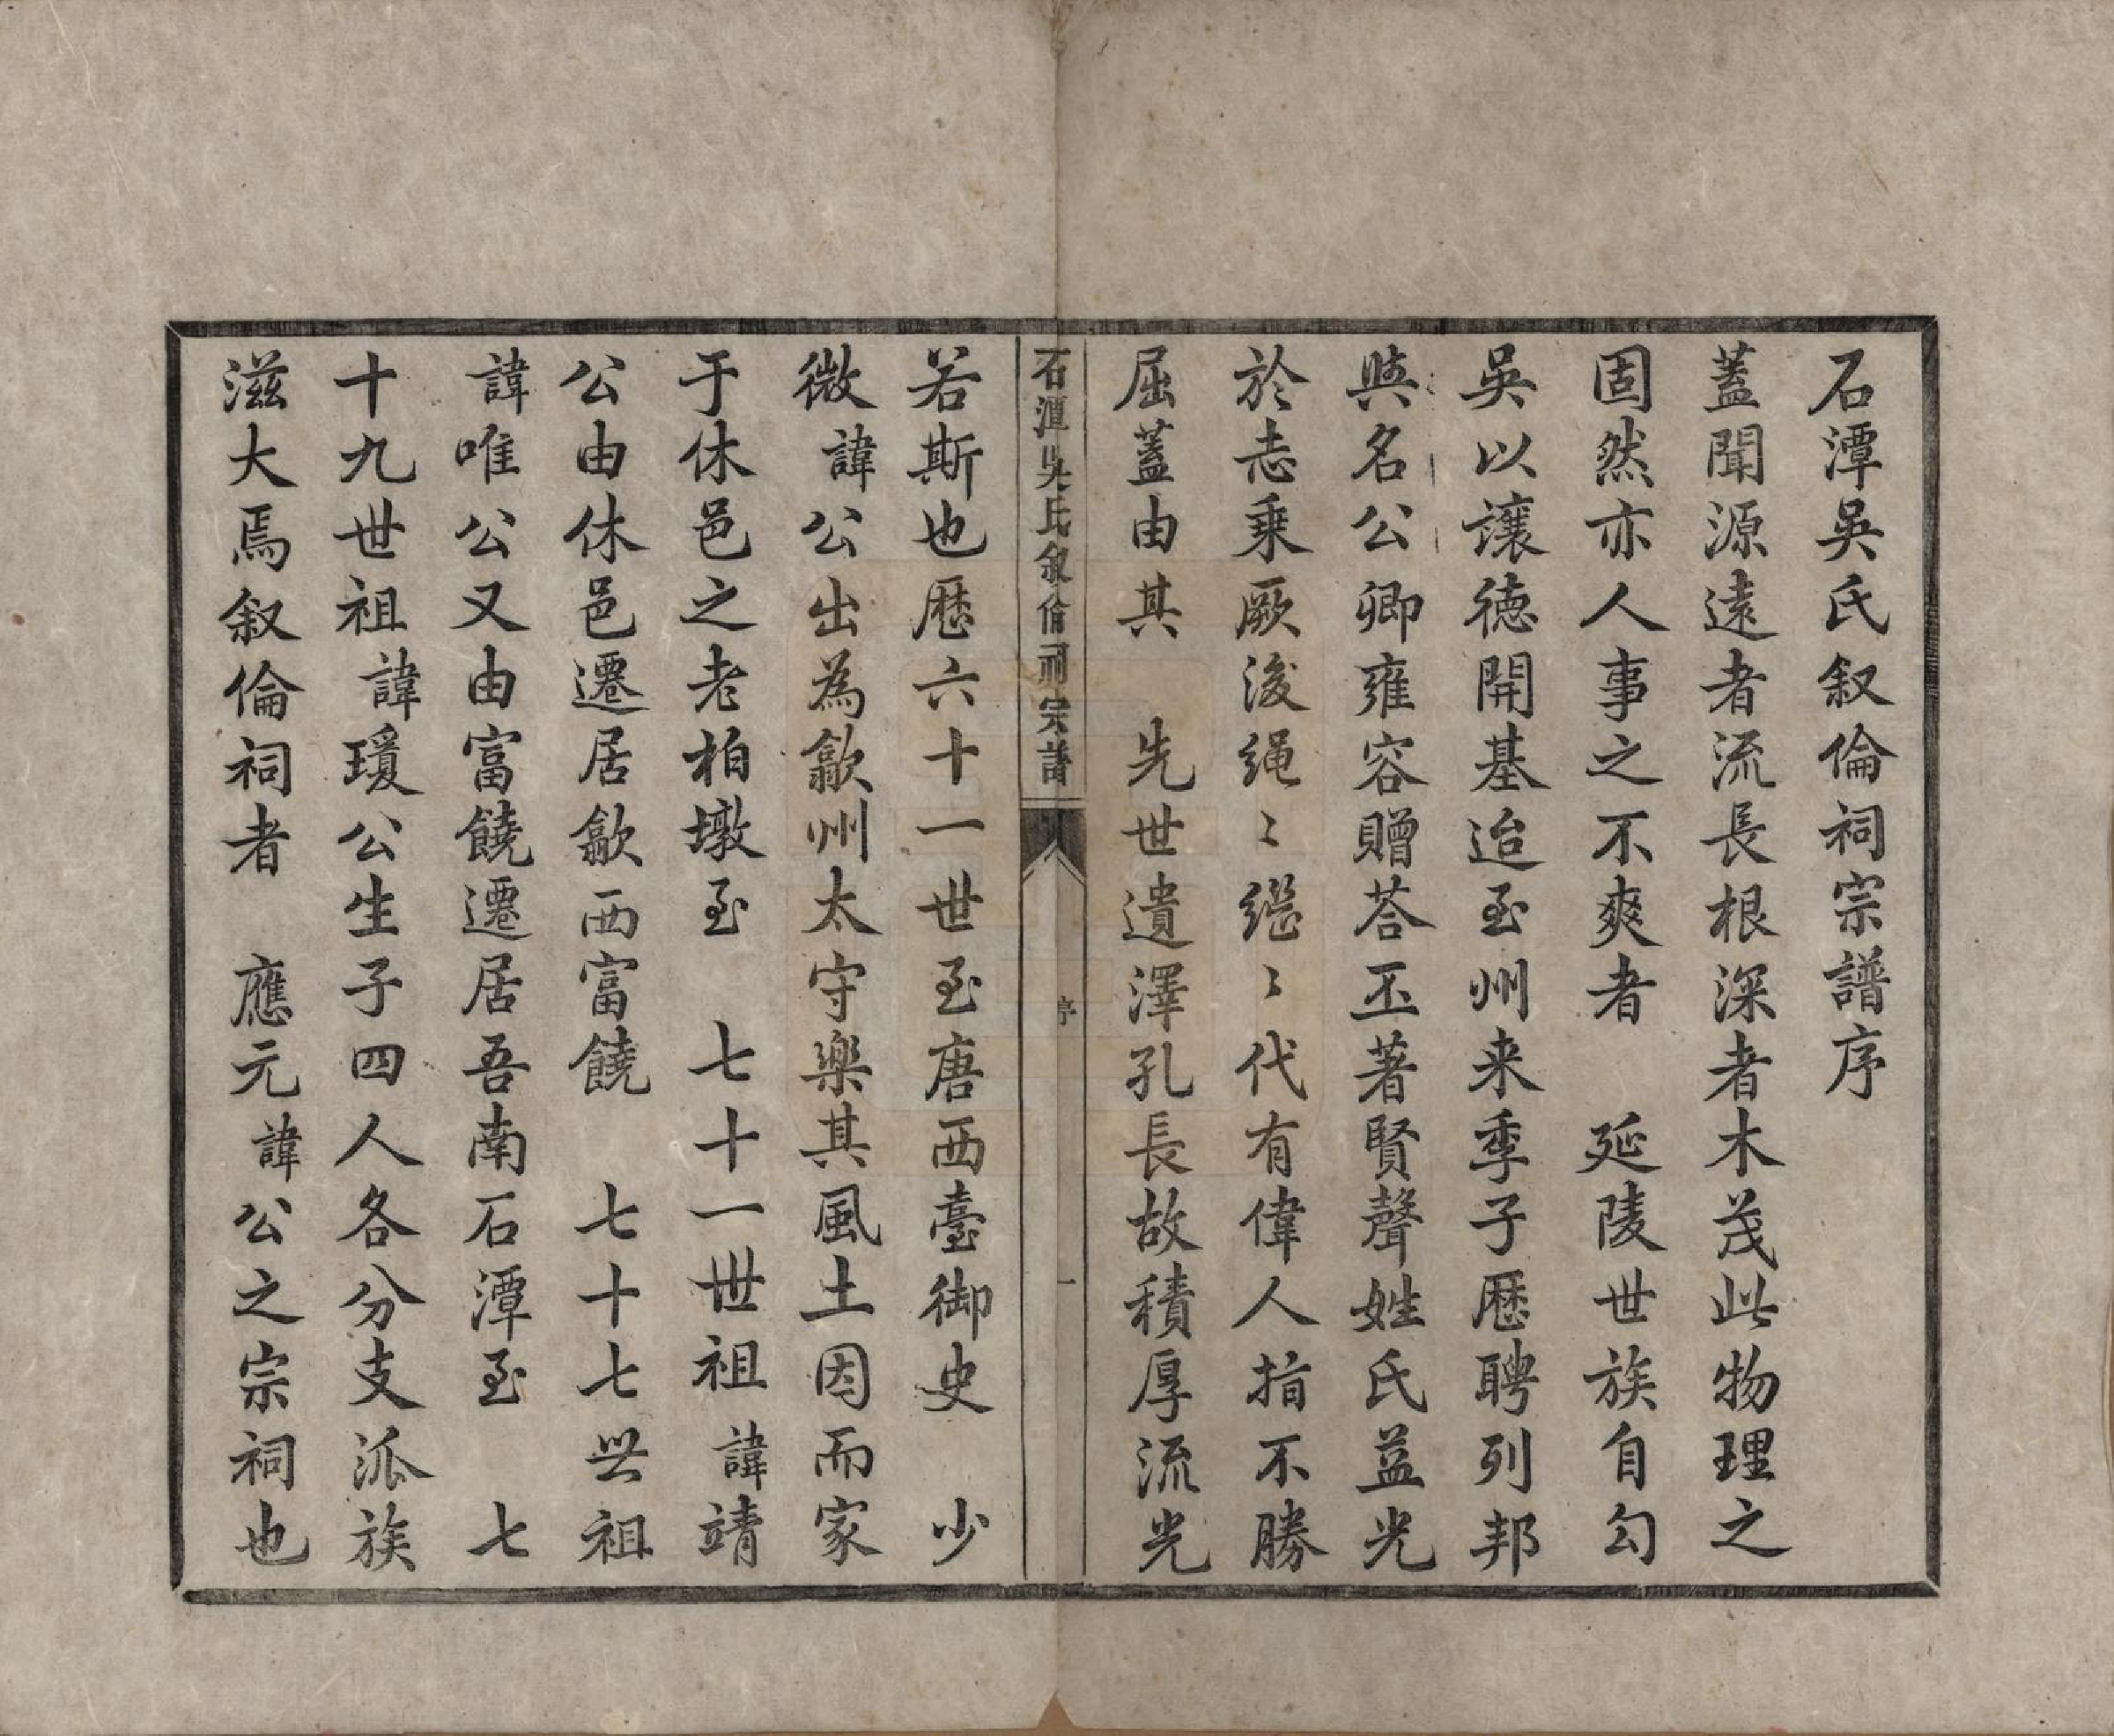 石潭吳氏叙倫祠宗譜序
蓋聞源遠者流長根深者木茂此物理之
固然亦人事之不爽者　延陵世族自勾
吳以讓德開基迨至州来季子歷聘列邦
與名公卿雍容贈荅丕著賢聲姓氏益光
於志乗厥後䋲〻繼〻代有偉人指不勝
屈蓋由其　先世遺澤孔長故積厚流光
石潭吳氏叙倫祠宗譜
序
一
若斯也歷六十一世至唐西臺御史　少
微諱公出為歙州太守樂其風土因而家
于休邑之老柏墩至　七十一世祖諱靖
公由休邑遷居歙西富饒　七十七世祖
諱唯公又由富饒遷居吾南石潭至　七
十九世祖諱瓊公生子四人各分支派族
滋大焉叙倫祠者　應元諱公之宗祠也